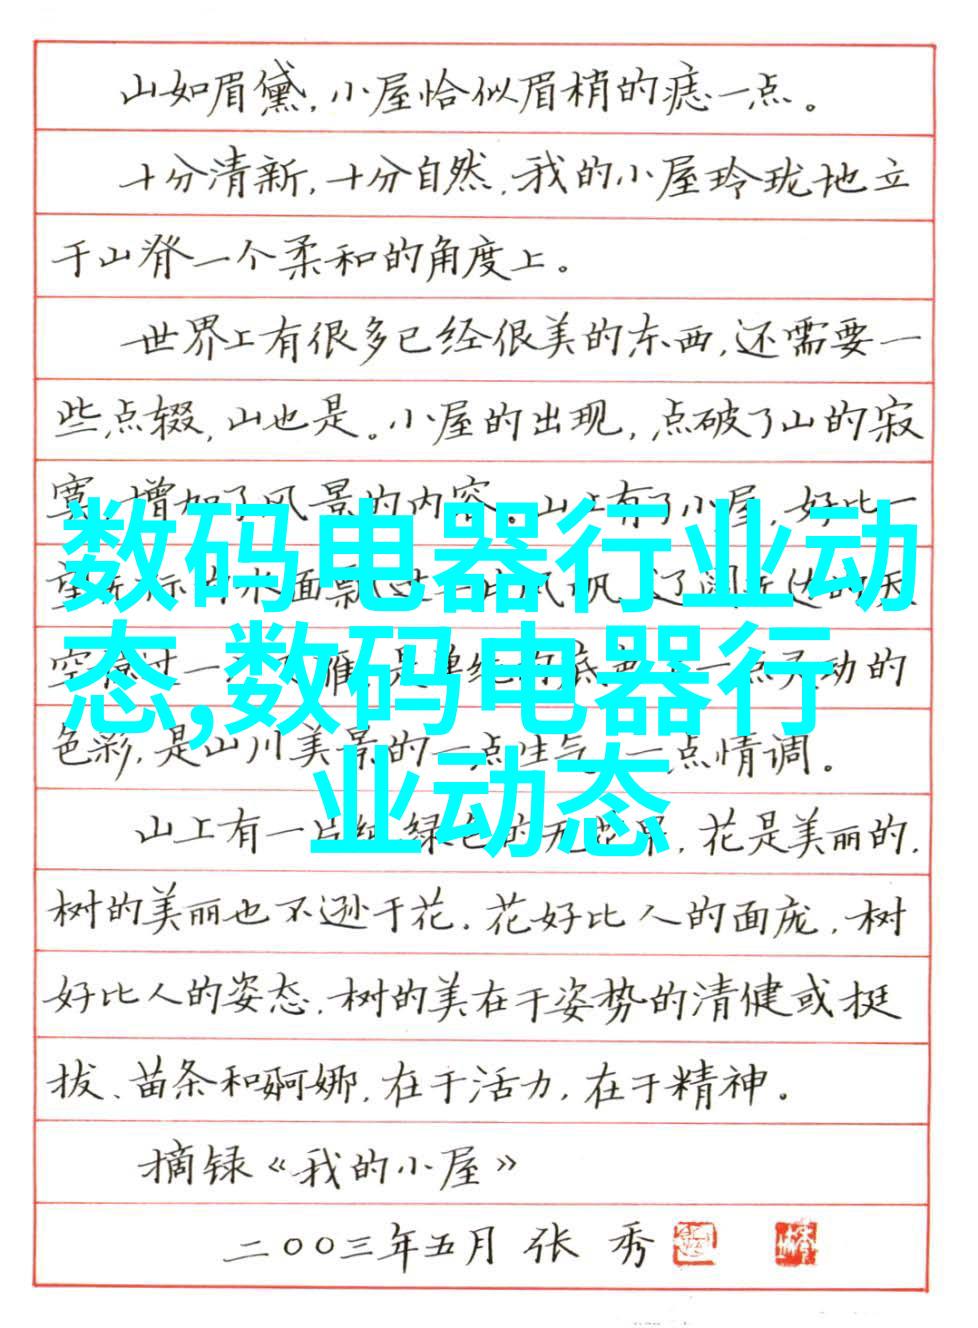 山如眉黛,小屋恰似眉梢的痣一点。
十分清新,十分自然,我的小屋玲珑地立
于山脊一个柔和的角度上。
世界上有很多已经很美的东西,还需要一
些点缀,山也是。小屋的出现,点破了山的寂
寞,增加了风景的内容。山上有了小屋,好比一
数码电器行业动
态,数码电器行
业动态
色彩,是山川美景的一点生气,一点情调。
山上有一片 绿色的 花是美丽的,
树的美丽也不逊于花。花好比人的面庞,树
好比人的姿态。树的美在于姿势的清健或挺
拔、苗条和婀娜,在于活力,在于精神。
摘录《我的小屋》
二〇〇三年五月 张 秀